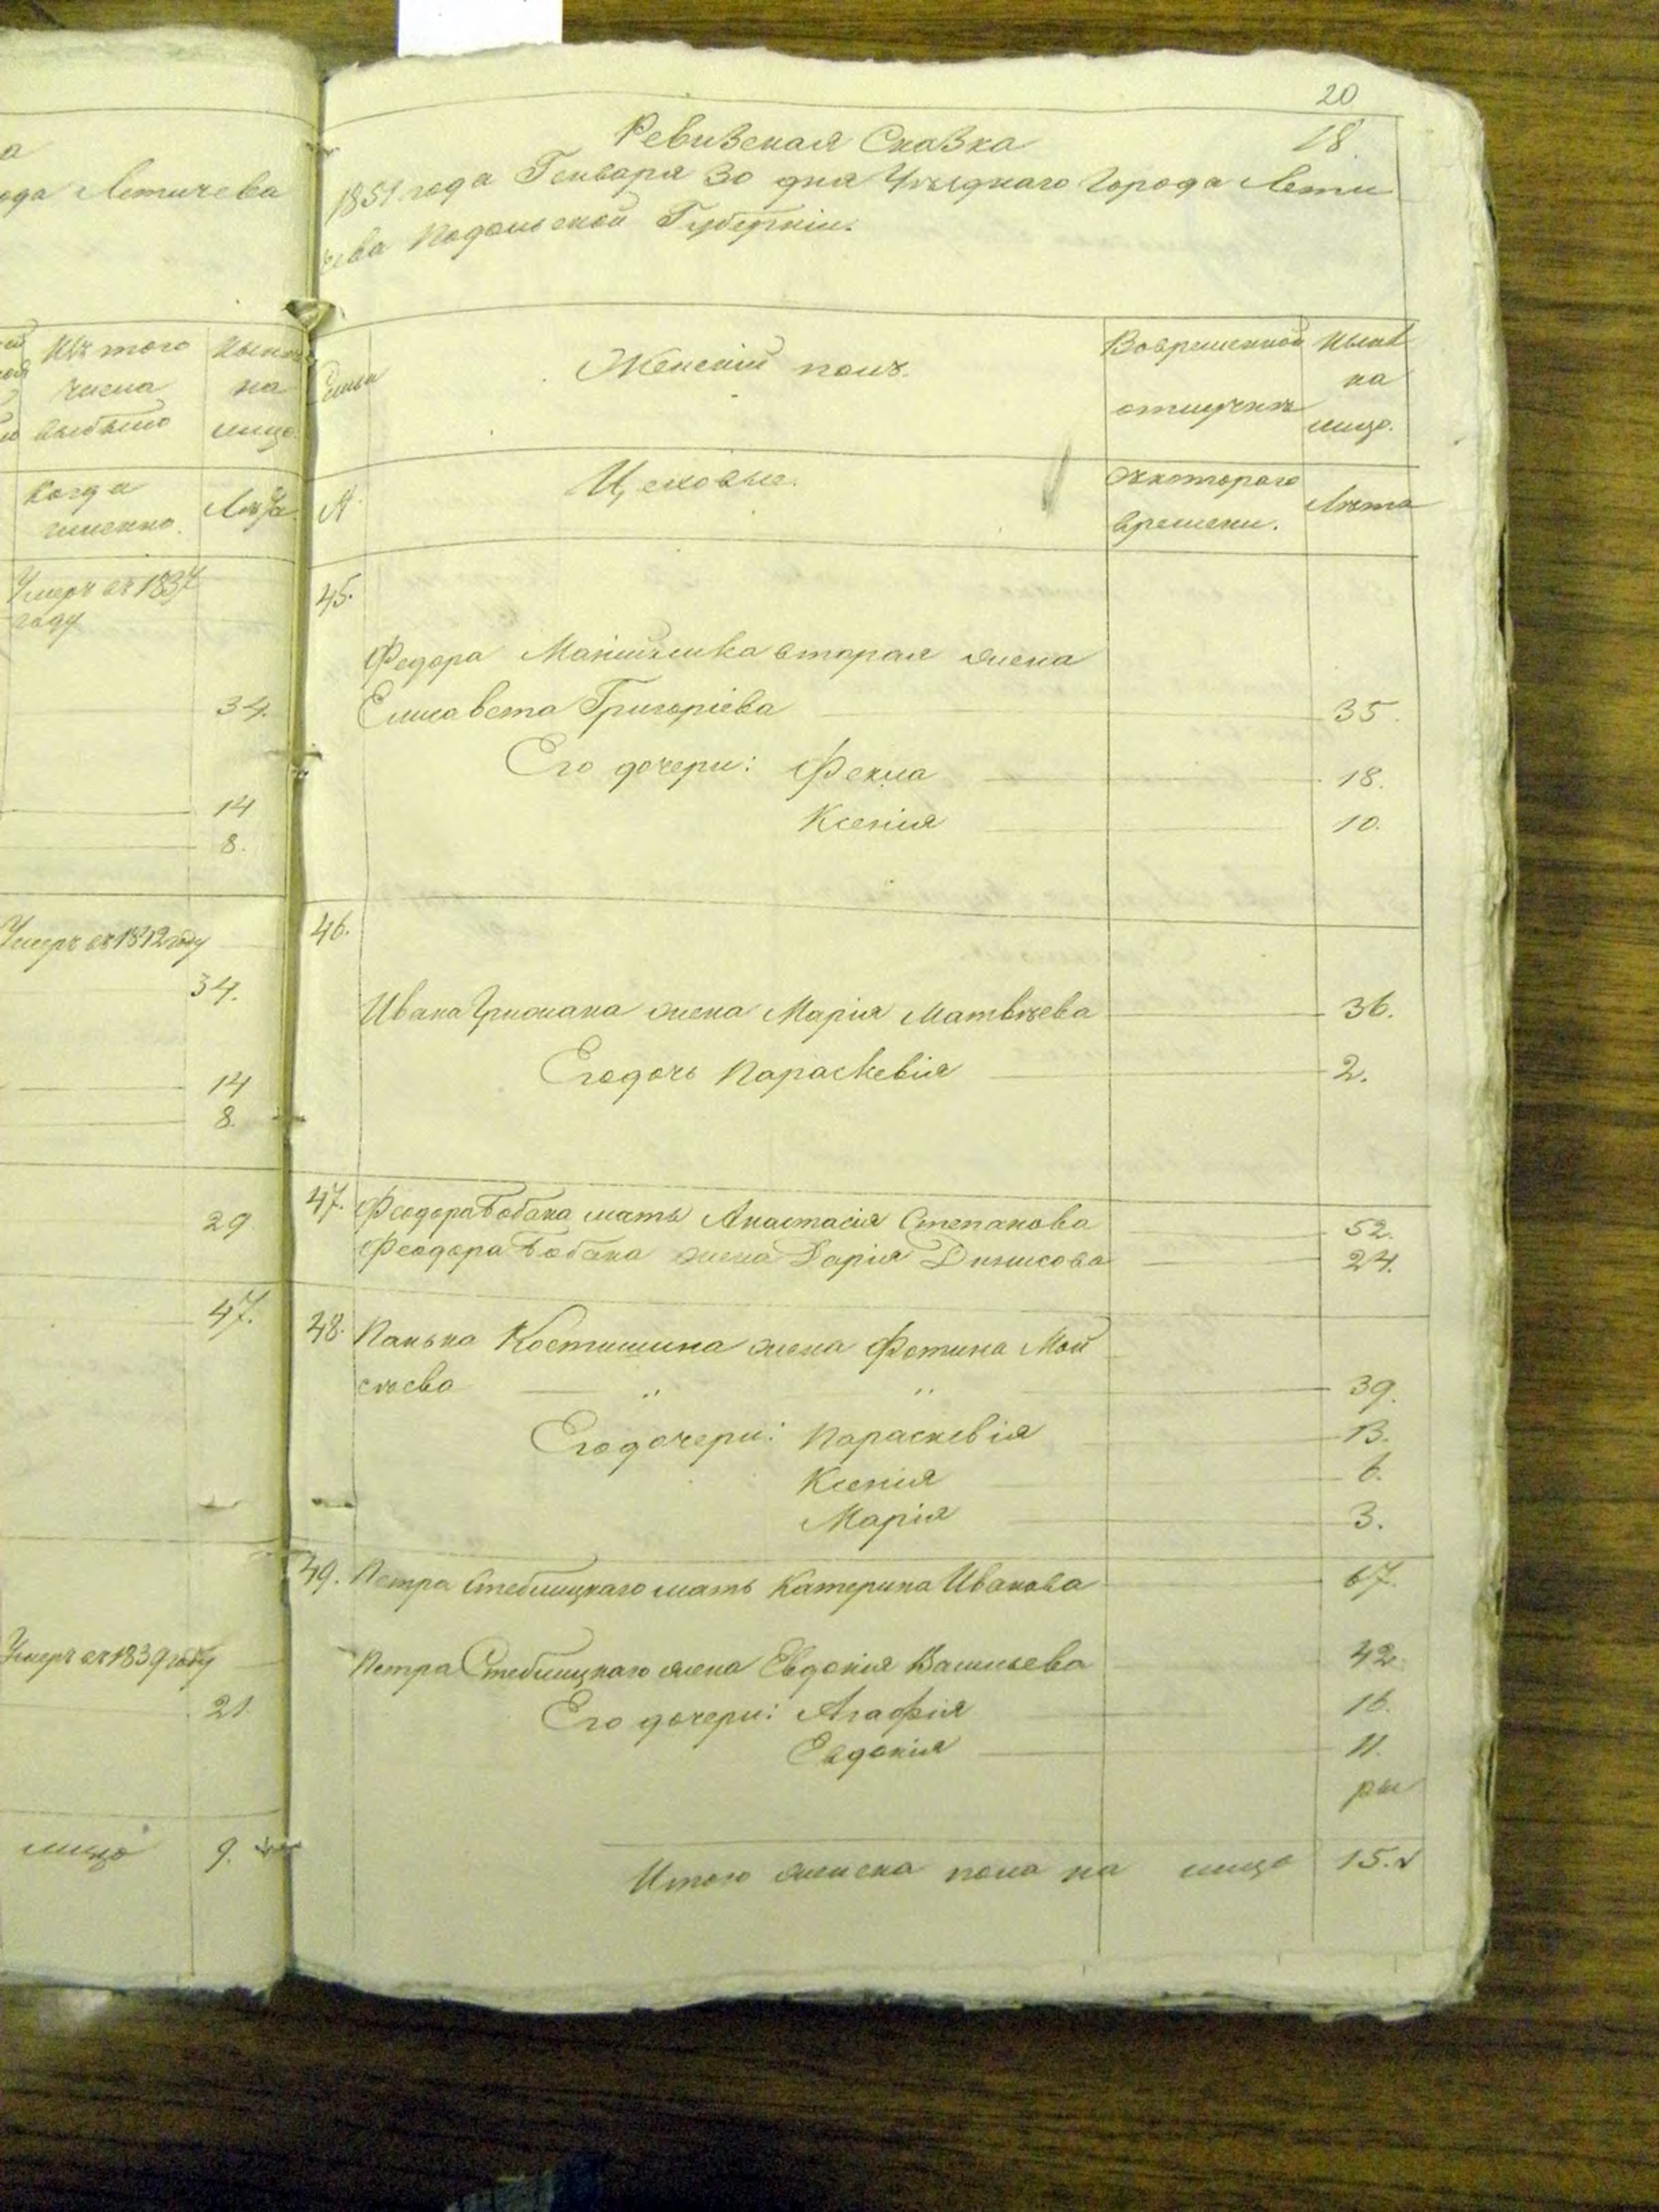 а
ода Летичева
Изъ того
числа
выбыло
ныне
на
лицо.
Когда
именно.
Лета
Умеръ въ 1837
году
34.
14
8.
Умеръ въ 1842 году
34.
14
8.
29
47.
Умеръ въ 1839 году
21
лицо 9.
20
18
Ревизская Сказка
1851 года Генваря 30 дня Уѣзднаго Города Лети
чева Подольской Губерніи.
Семьи
Женскій полъ.
Вовременной
отлучкѣ
Нынѣ
на
лицо.
№
Цеховые.
Съкотораго
времени.
Лѣта
45.
Федора вторая жена
Елисавета Григоріева 35.
Его дочери: Фекла 18.
Ксенія 10.
46.
Ивана жена Марія Матвѣева 36.
Его дочь Параскевія 2.
47. Феодора Бабака мать Анастасія Степанова 52.
Феодора Бабака жена Дарія Динисова 24.
48. Панька Костишина жена Фотина Мой
сѣева " " 39.
Его дочери: Параскевія 13.
Ксенія 6.
Марія 3.
49. Петра Стеблицкаго мать Катерина Иванова 67.
Петра Стеблицкаго жена Евдокія Васильева 42.
Его дочери: Агафія 16.
Евдокія 11.
Итого женска пола на лицо 15.